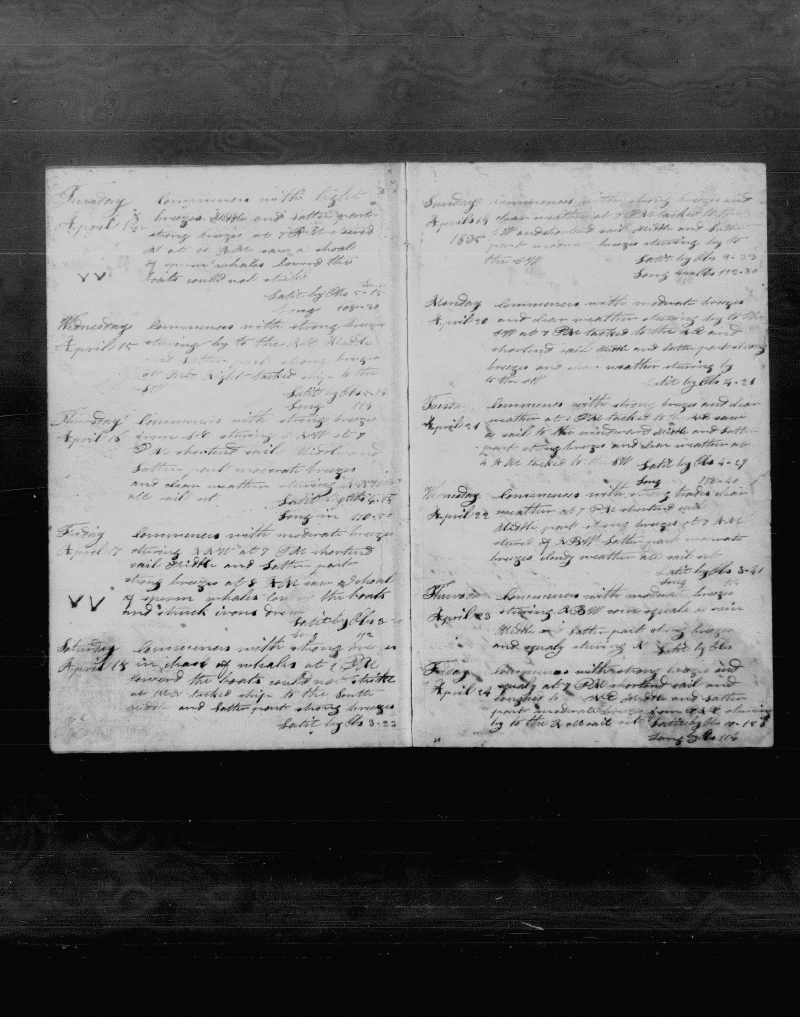 Tuesday Commences with light
April 14 breezes Middle and Latter part
strong breezes at 7 steered
at 11 AM saw a shoal
of sperm whales lowerd the
boats could not strike
Latit by Obs 5-15
Long 108-30
Wednesday Commences with strong breezes
April 15 stering by to the Middle
and Latter part strong breezes
at Mid Night tacked ship to the
SW
Latit by Obs
Long 114
Thursday Commences with strong breezes
April 16 from stering at 7
PM shortend sail Middle and
Latter part moderate breezes
and clear weather stering
all sail set Latit by Obs 4-15
Long in 110-30
Friday Commences with moderate breezes
April 17 stering at 7 PM shortend
sail Middle and Latter part
strong breezes at 8 AM saw a shoal
of sperm whales the boats
and struck irons
Latit by Obs 3
Saturday Commences with strong
April 18 in chase of whales at 1 PM
lowerd the boats could not strike
at tacked ship to the South
Middle and Latter part strong breezes
Latit by Obs 3-23
Sunday Commences with strong breezes and
April 19 clear weather at 7 PM tacked to the
1835 SW and shortend sail Middle and Latter
part breezes stering by to
the SW Latit by Obs 3-23
Long by Obs 112-30
Monday Commences with moderate breezes
April 20 and clear weather stering by to the
SW at 7 PM tacked to the NE and
shortend sail Middle and Latter part strong
breezes and clear weather stering by
to the SW Latit by Obs 4-21
Tuesday Commences with strong breezes and clear
April 21 weather at PM tacked to NE saw
a sail to the windward Middle and Latter
part strong breezes and clear weather at
AM tacked to the SW Latit by Obs 4-19
Long
Wednesday Commences with strong trades clear
April 22 weather at 7 PM shortend sail
Middle part strong breezes at 7 AM
sterd Latter part moderate
breezes cloudy weather all sail set
Latit by Obs 3-41
Long
Thursday Commences with moderate breezes
April 23 stering some squals of rain
Middle and Latter part strong breezes
and squaly stering N Latit by Obs
Friday Commences with strong breezes and
April 24 squaly at 7 PM shortend sail and
to NE Middle and Latter
part moderate breezes from stering
by to the N all sail set Latit by Obs
Long by Obs 114